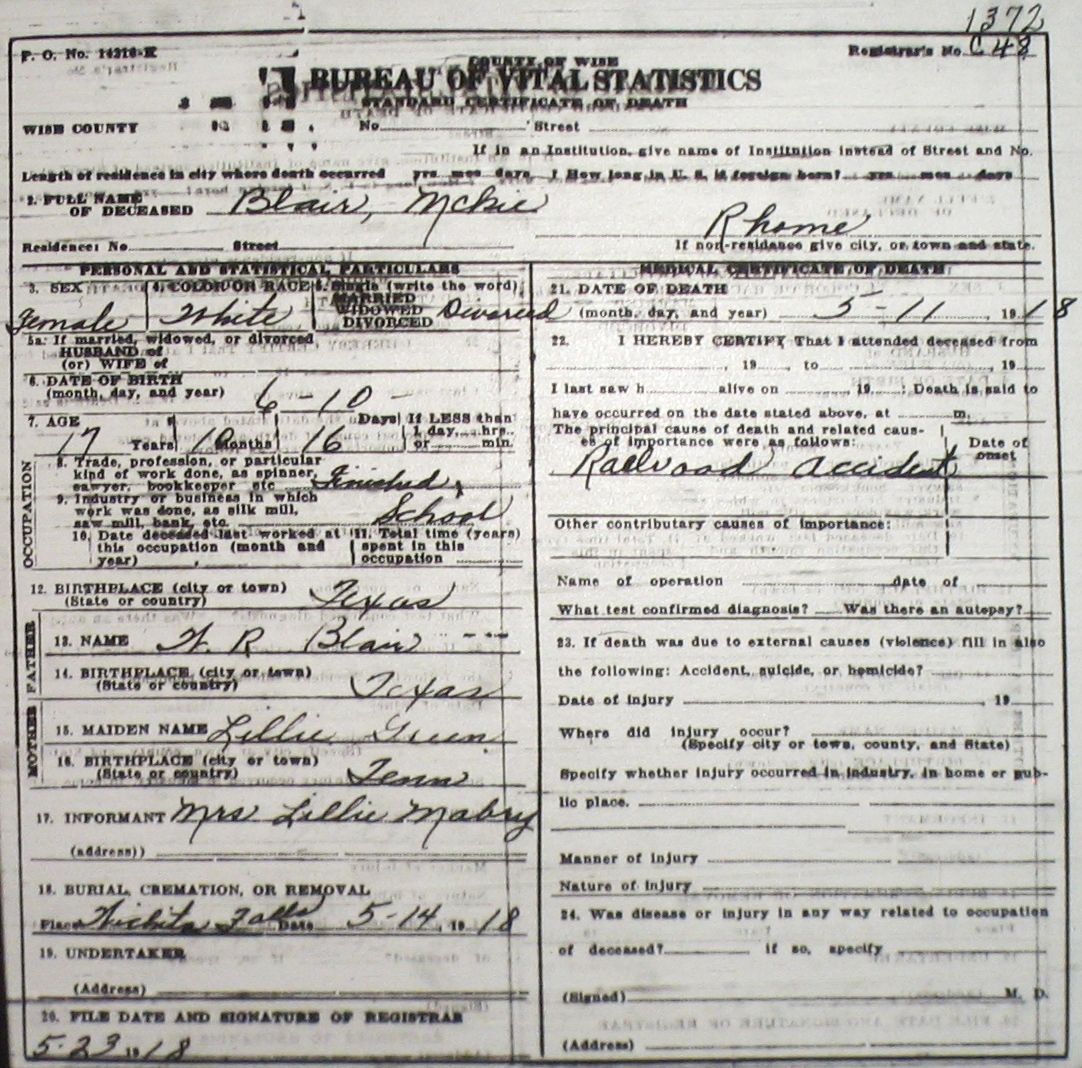 1372
P. O. No. 14216-K
Registrar's No. C 48
COUNTY OF WISE
BUREAU OF VITAL STATISTICS
STANDARD CERTIFICATE OF DEATH
WISE COUNTY No. Street
If in an Institution, give name of Institution instead of Street and No.
Length of residence in city where death occurred yrs mos days ! How long in U. S. if foreign born? yrs mos days
2. FULL NAME
OF DECEASED Blair, McKie Rhome
Residence: No. Street If non-residance give city, or town and state.
PERSONAL AND STATISTICAL PARTICULARS
3. SEX Female
4. COLOR OR RACE White
5. Single (write the word)
MARRIED
WIDOWED
DIVORCED Divorced
5a. If married, widowed, or divorced
HUSBAND of
(or) WIFE of
6. DATE OF BIRTH
(month, day, and year) 6 - 10 -
7. AGE 17 Years 10 Months 16 Days If LESS than
1 day, hrs.
or min.
OCCUPATION
8. Trade, profession, or particular
kind of work done, as spinner,
sawyer, bookkeeper etc Finished
9. Industry or business in which
work was done, as silk mill,
saw mill, bank, etc. School
10. Date deceased last worked at
this occupation (month and
year)
11. Total time (years)
spent in this
occupation
12. BIRTHPLACE (city or town)
(State or country) Texas
FATHER
13. NAME W. R Blair ---
14. BIRTHPLACE (city or town)
(State or country) Texas
MOTHER
15. MAIDEN NAME Lillie Green
16. BIRTHPLACE (city or town)
(State or country) Tenn
17. INFORMANT Mrs Lillie Mabry
(address))
18. BURIAL, CREMATION, OR REMOVAL
Place Wichita Falls Date 5-14, 1918
19. UNDERTAKER
(Address)
20. FILE DATE AND SIGNATURE OF REGISTRAR
5-23 1918
MEDICAL CERTIFICATE OF DEATH
21. DATE OF DEATH
(month, day, and year) 5-11, 1918
22. I HEREBY CERTIFY That I attended deceased from
, 19 , to , 19
I last saw h alive on , 19 : Death is said to
have occurred on the date stated above, at m.
The principal cause of death and related caus-
es of importance were as follows:
Date of
onset
Railroad accident
Other contributary causes of importance:
Name of operation date of
What test confirmed diagnosis? Was there an autopsy?
23. If death was due to external causes (violence) fill in also
the following: Accident, suicide, or homicide?
Date of injury , 19
Where did injury occur?
(Specify city or town, county, and State)
Specify whether injury occurred in industry, in home or pub-
lic place.
Manner of injury
Nature of injury
24. Was disease or injury in any way related to occupation
of deceased? if so, specify
(Signed) M. D.
(Address)